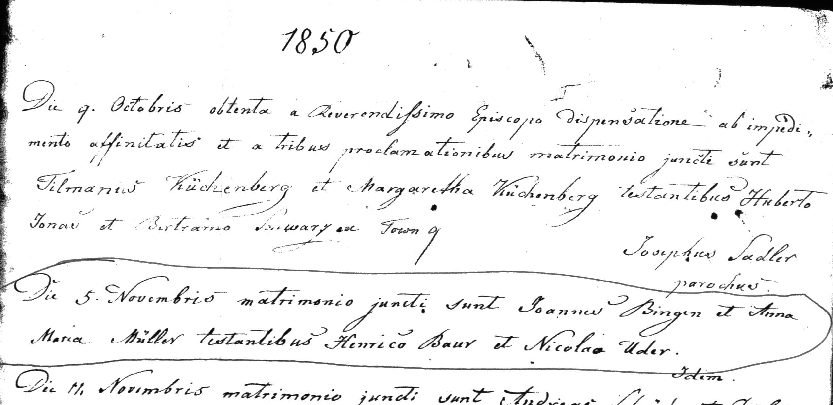 1850
Die 9. Octobris obtenta a Reverendissimo Episcopo dispensatione ab impedi-
mento affinitatis et a tribus proclamationibus matrimonio juncti sunt
Tilmanus Küchenberg et Margaretha Küchenberg testantibus Huberto
Jonas et Bertramo Town 9
Josephus Sadler
parochus.
Die 5. Novembris matrimonio juncti sunt Joannes Bingen et Anna
Maria Müller testantibus Henrico Baur et Nicolao Uder.
Idem.
Die 11. Novembris matrimonio juncti sunt Andreas